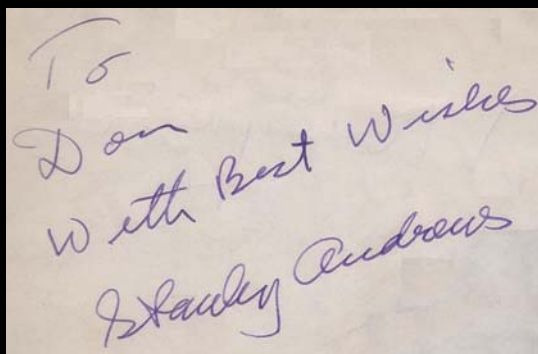 To
Don
With Best Wishes
Stanley Andrews